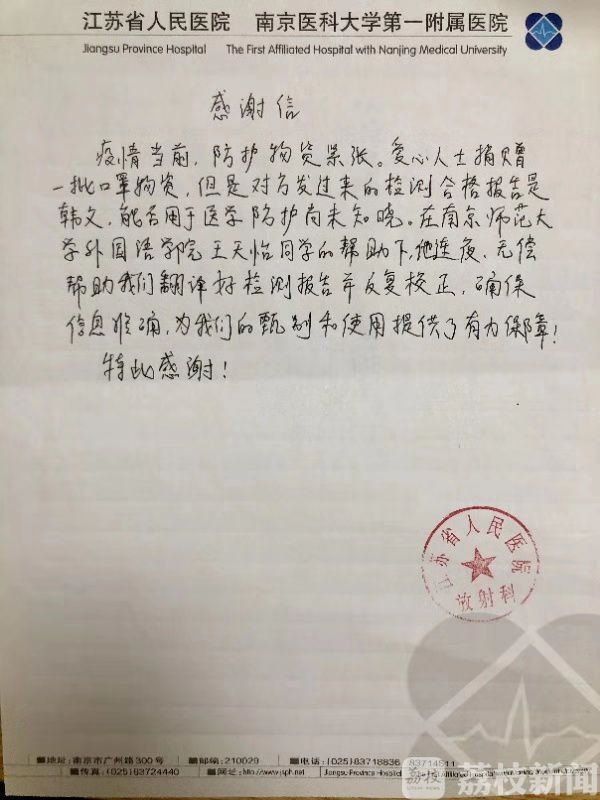 江苏省人民医院 南京医科大学第一附属医院
Jiangsu Province Hospital The First Affiliated Hospital with Nanjing Medical University
感谢信
疫情当前，防护物资紧张。爱心人士捐赠
一批口罩物资，但是对方发过来的检测合格报告是
韩文，能否用于医学防护尚未知晓。在南京师范大
学外国语学院王天怡同学的帮助下，他连夜、无偿
帮助我们翻译好检测报告并反复校正，确保
信息准确，为我们的甄别和使用提供了有力保障！
特此感谢！
江苏省人民医院
放射科
地址：南京市广州路300号 邮编：210029 电话：(025)83718836 83714511
传真：(025)83724440 网址：http://www.jsph.net Jiangsu Province Hospital Affiliated Hospital with Nanjing Medical University
荔枝 荔枝新闻